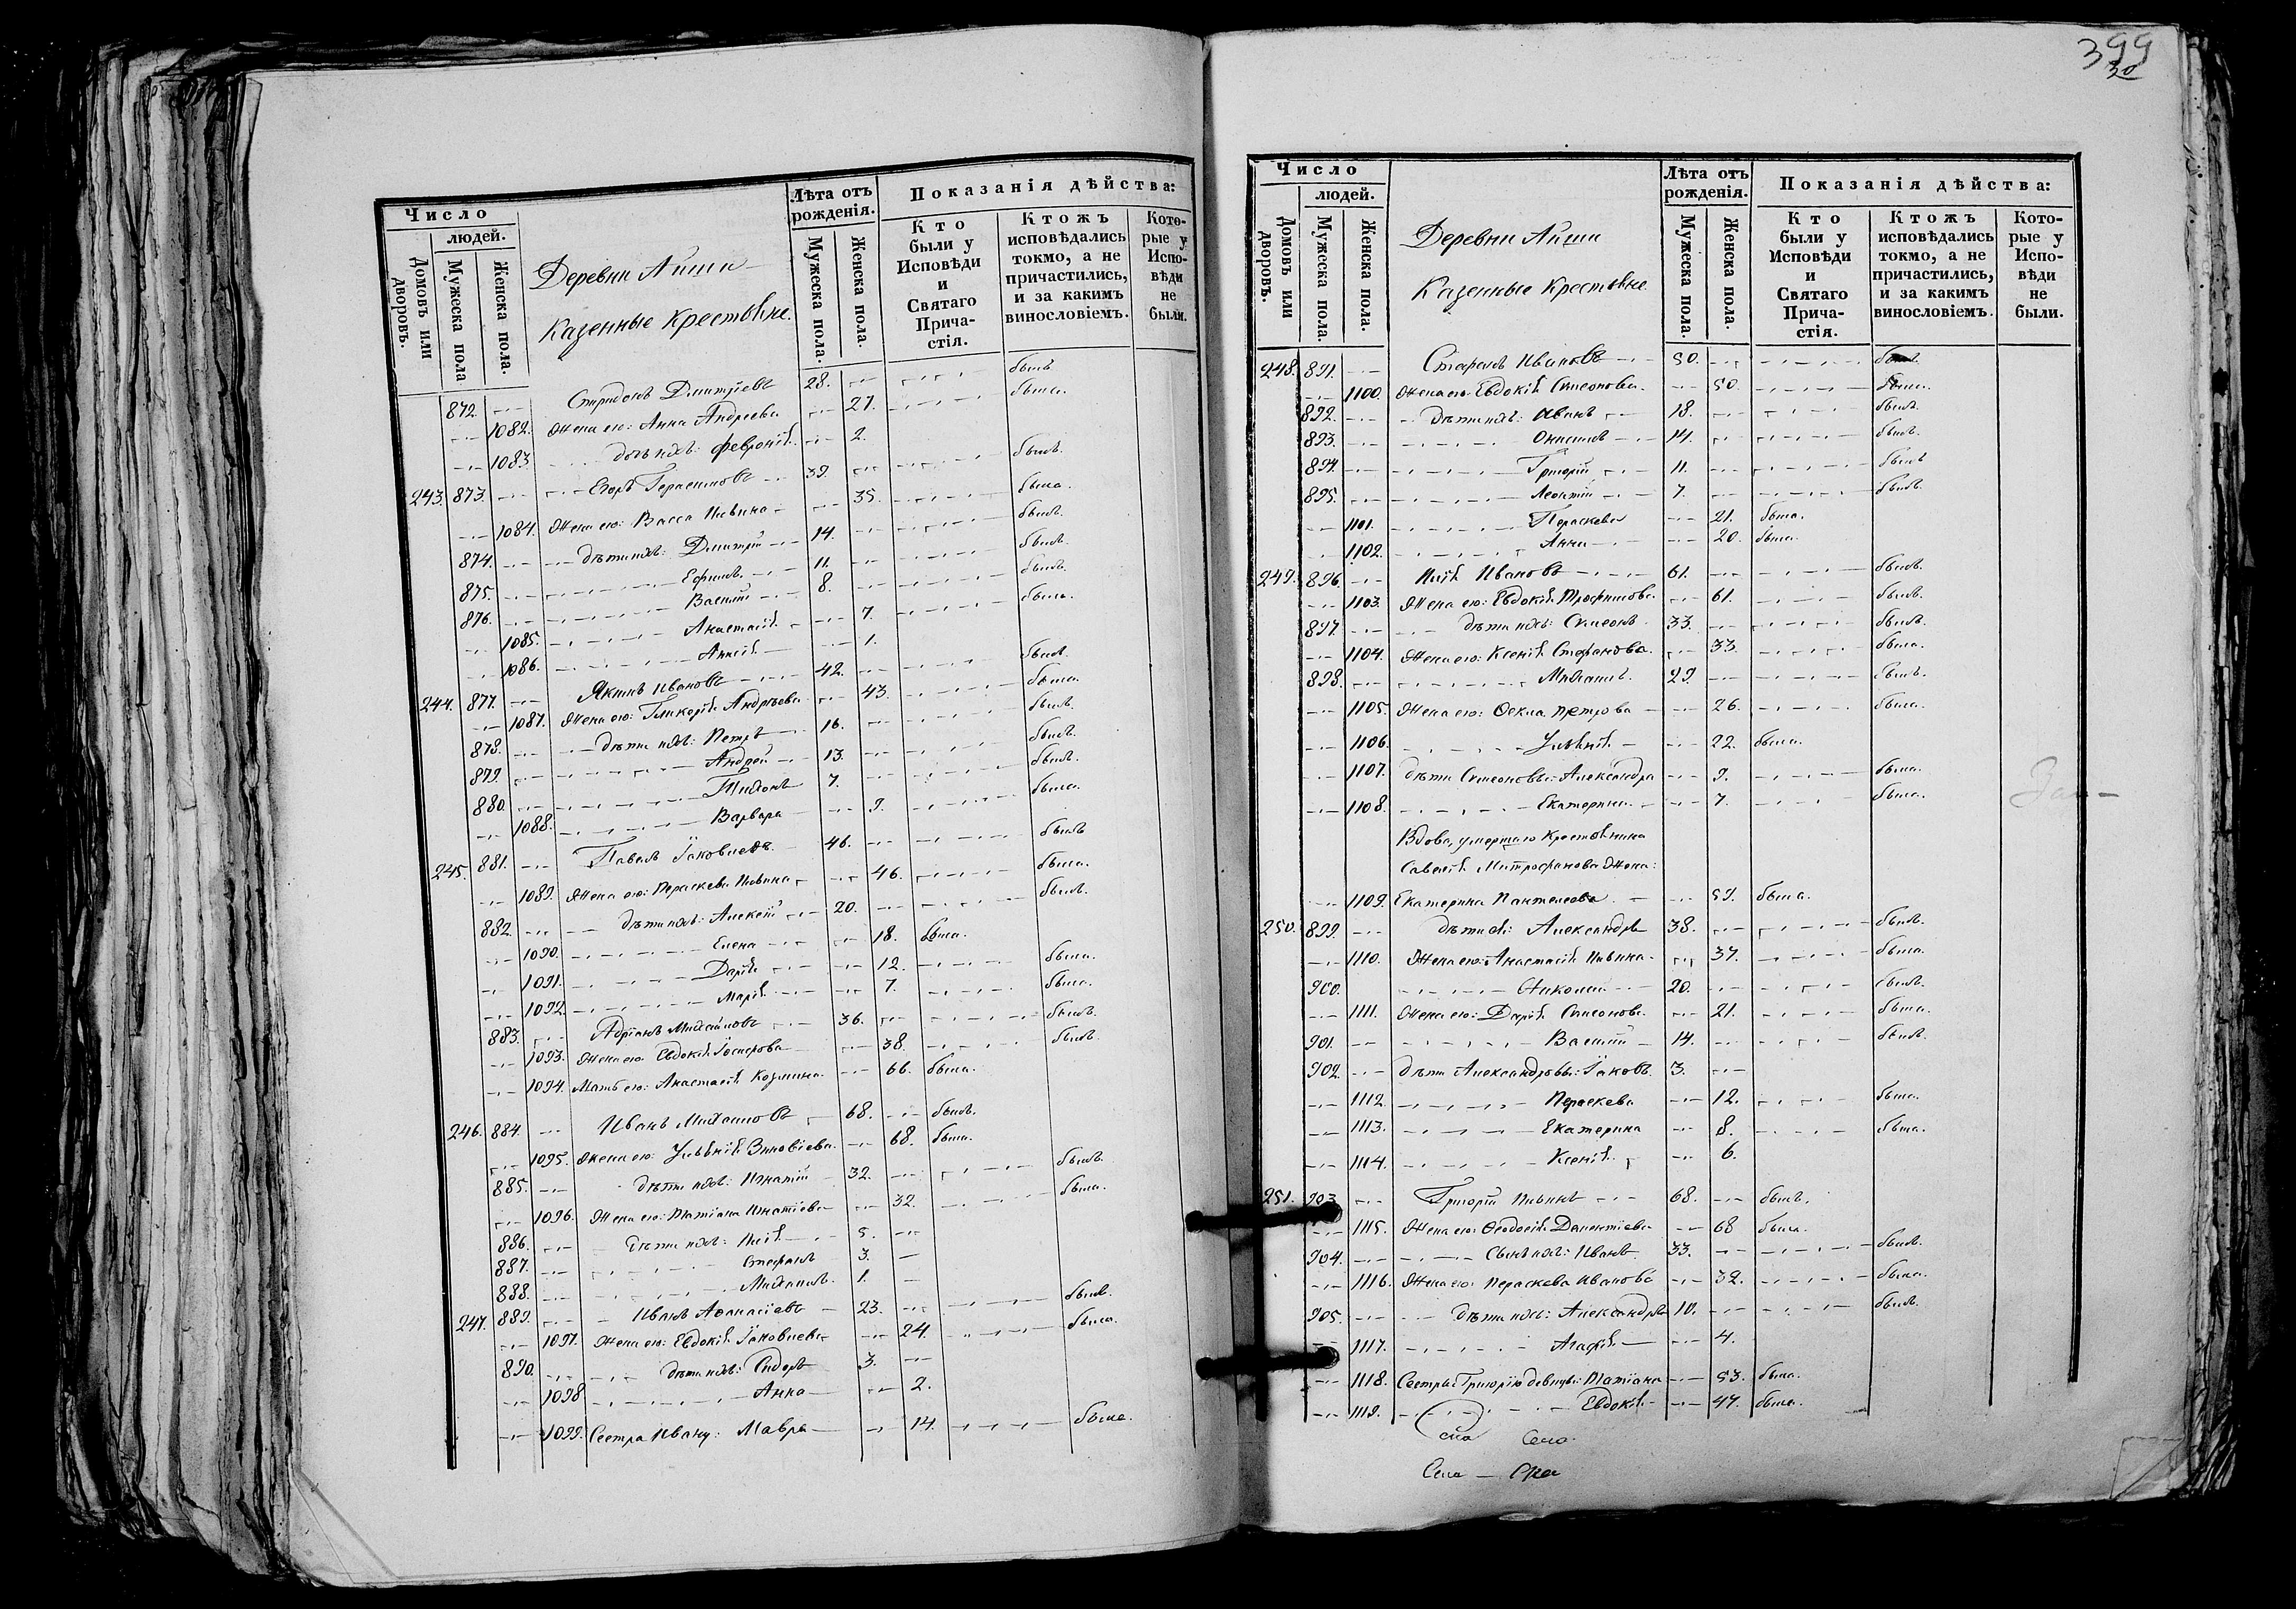 Число
людей.
Домовъ или дворовъ.
Мужеска пола
Женска пола.
Деревни Айши
Казенные Крестьяне.
Лѣта отъ рожденія.
Мужеска пола.
Женска пола.
Показанія дѣйства:
Кто были у Исповѣди и Святаго Причастія.
Ктожъ исповѣдались токмо, а не причастились, и за какимъ винословіемъ.
Которые у Исповѣди не были.
872. Спиридонъ Димитріевъ 28. былъ
1082. Жена его: Анна Андреева 27. была.
1083. дочь ихъ: Февронія 2.
243. 873. Егоръ Герасимовъ 39. былъ.
1084. Жена его: Васса Ильина 35. была.
874. дѣти ихъ: Димитрій 14. былъ.
875. Ефимъ 11. былъ.
876. Василій 8. былъ.
1085. Анастасія 7. была.
1086. Анисія 1.
244. 877. Якимъ Ивановъ 42. былъ.
1087. Жена его: Гликерія Андрѣева 43. была.
878. дѣти ихъ: Петръ 16. былъ.
879. Андрей 13. былъ.
880. Тихонъ 7. былъ.
1088. Варвара 9. была.
245. 881. Павелъ Іаковлевъ 46. былъ
1089. Жена его: Параскева Ильина 46. была.
882. дѣти ихъ: Алексій 20. былъ.
1090. Елена 18. была.
1091. Дарія 12. была.
1092. Марія 7. была.
883. Адріанъ Михайловъ 36. былъ.
1093. Жена его: Евдокія 38. былъ.
1094. Мать его: Анастасія Козмина 66. была.
246. 884. Иванъ Михайловъ 68. былъ.
1095. Жена его: Уліянія Зиновіева 68. была.
885. дѣти ихъ: Игнатій 32. былъ.
1096. Жена его: Татіана Игнатіева 32. была.
886. дѣти ихъ: Илія 5.
887. Стефанъ 3.
888. Михаилъ 1.
247. 889. Иванъ Аѳанасіевъ 23. былъ.
1097. Жена его: Евдокія Іаковлева 24. была.
890. дѣти ихъ: Сидоръ 3.
1098 Анна 2.
1099. Сестра Ивану: Мавра 14. была.
399
30
Число
людей.
Домовъ или дворовъ.
Мужеска пола.
Женска пола.
Деревни Айши
Казенные Крестьяне.
Лѣта отъ рожденія.
Мужеска пола.
Женска пола.
Показанія дѣйства:
Кто были у Исповѣди и Святаго Причастія.
Ктожъ исповѣдались токмо, а не причастились, и за какимъ винословіемъ.
Которые у Исповѣди не были.
248. 891. Стефанъ Ивановъ 50. былъ
1100. Жена его: Евдокія Симеонова 50. была.
892. Дѣти ихъ: Иванъ 18. былъ.
893. Онисимъ 14. былъ.
894. Григорій 11. былъ
895. Леонтій 7. былъ.
1101. Параскева 21. была.
1102. Анна 20. была.
249. 896. Илія Ивановъ 61. былъ.
1103. Жена его: Евдокія Трофимова 61. былъ.
897. дѣти ихъ: Симеонъ 33. былъ.
1104. Жена его: Ксенія Стефанова 33. была.
898. Михаилъ 29. былъ.
1105. Жена его: Ѳекла Петрова 26. была.
1106. Уліянія 22. была.
1107. дѣти Симеоновы: Александра 9. была.
1108. Екатерина 7. была.
Вдова, умершаго Крестьянина
Савелія Митрофанова Жена:
1109. Екатерина Пантелеева 59. была.
250. 899. дѣти ея: Александръ 38. былъ.
1110. Жена его: Анастасія Ильина 37. была.
900. Николай 20. былъ.
1111. Жена его: Дарія Симеонова 21. была.
901. Василій 14. былъ.
902. дѣти Александровы: Іаковъ 3.
1112. Параскева 12. была.
1113. Екатерина 8. была.
1114. Ксенія 6.
251. 903 Григорій Ильинъ 68. былъ.
1115. Жена его: Ѳеодосія Дементіева 68 была.
904. Сынъ ихъ: Иванъ 33. былъ.
1116. Жена его: Параскева Иванова 32. была.
905. дѣти ихъ: Александръ 10. былъ.
1117. Агафія 4.
1118. Сестры Григорію девицы: Татіана 53. была.
1119. Евдокія 47. была.